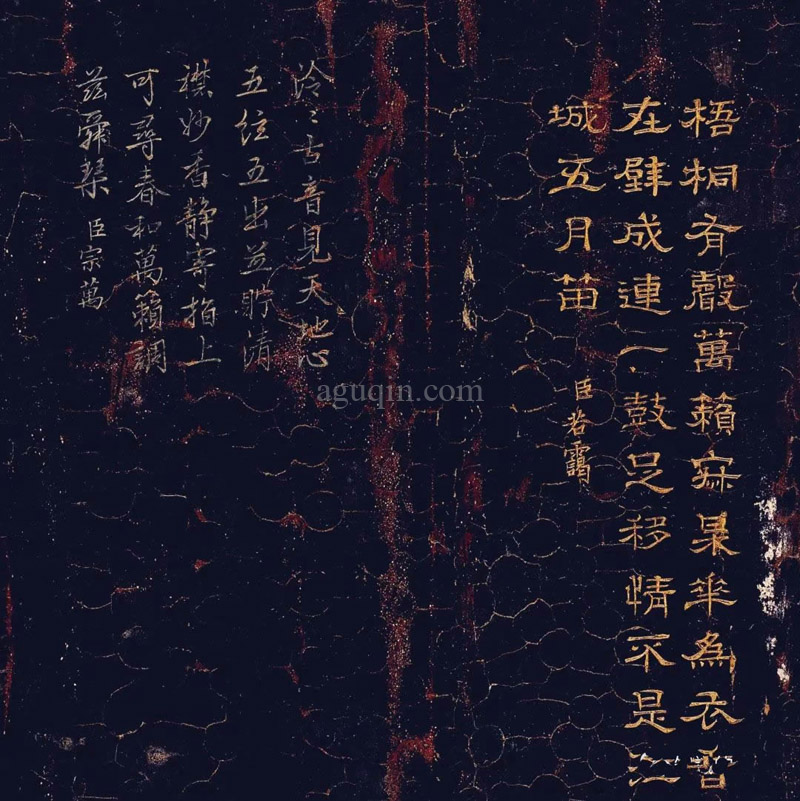 梧桐有聲萬籟寂某華為衣音
在壁成連一鼓足移情不是江
城五月笛
臣若靄
泠〻古音見天地心
五絃五出並貯清
襟妙香靜寄指上
可尋春和萬籟調
茲舜琴 臣宗萬
aguqin.com